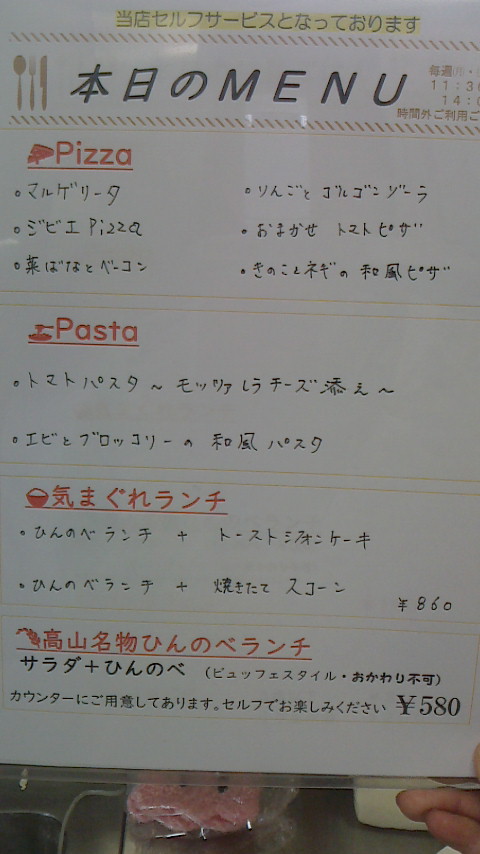 当店セルフサービスとなっております
本日のMENU
毎週
11:30
14:0
時間外ご利用
Pizza
・マルゲリータ
・りんごとゴルゴンゾーラ
・ジビエPizza
・おまかせ トマトピザ
・菜ばなとベーコン
・きのことネギの和風ピザ
Pasta
・トマトパスタ～モッツァレラチーズ添え～
・エビとブロッコリーの和風パスタ
気まぐれランチ
・ひんのべランチ + トーストシフォンケーキ
・ひんのべランチ + 焼きたてスコーン
¥860
高山名物ひんのべランチ
サラダ+ひんのべ (ビュッフェスタイル・おかわり不可)
カウンターにご用意してあります。セルフでお楽しみください ¥580